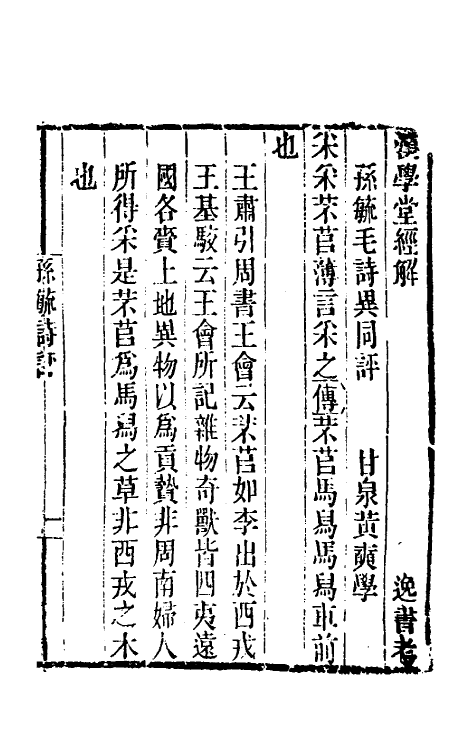 漢學堂經解 逸書考
孫毓毛詩異同評 甘泉黃奭學
采采芣苢薄言采之傳芣苢馬舄馬舄車前
也
王肅引周書王會云芣苢如李出於西戎
王基駮云王會所記雜物奇獸皆四夷遠
國各賫土地異物以爲貢贄非周南婦人
所得采是芣苢爲馬舄之草非西戎之木
也
孫毓詩評 一